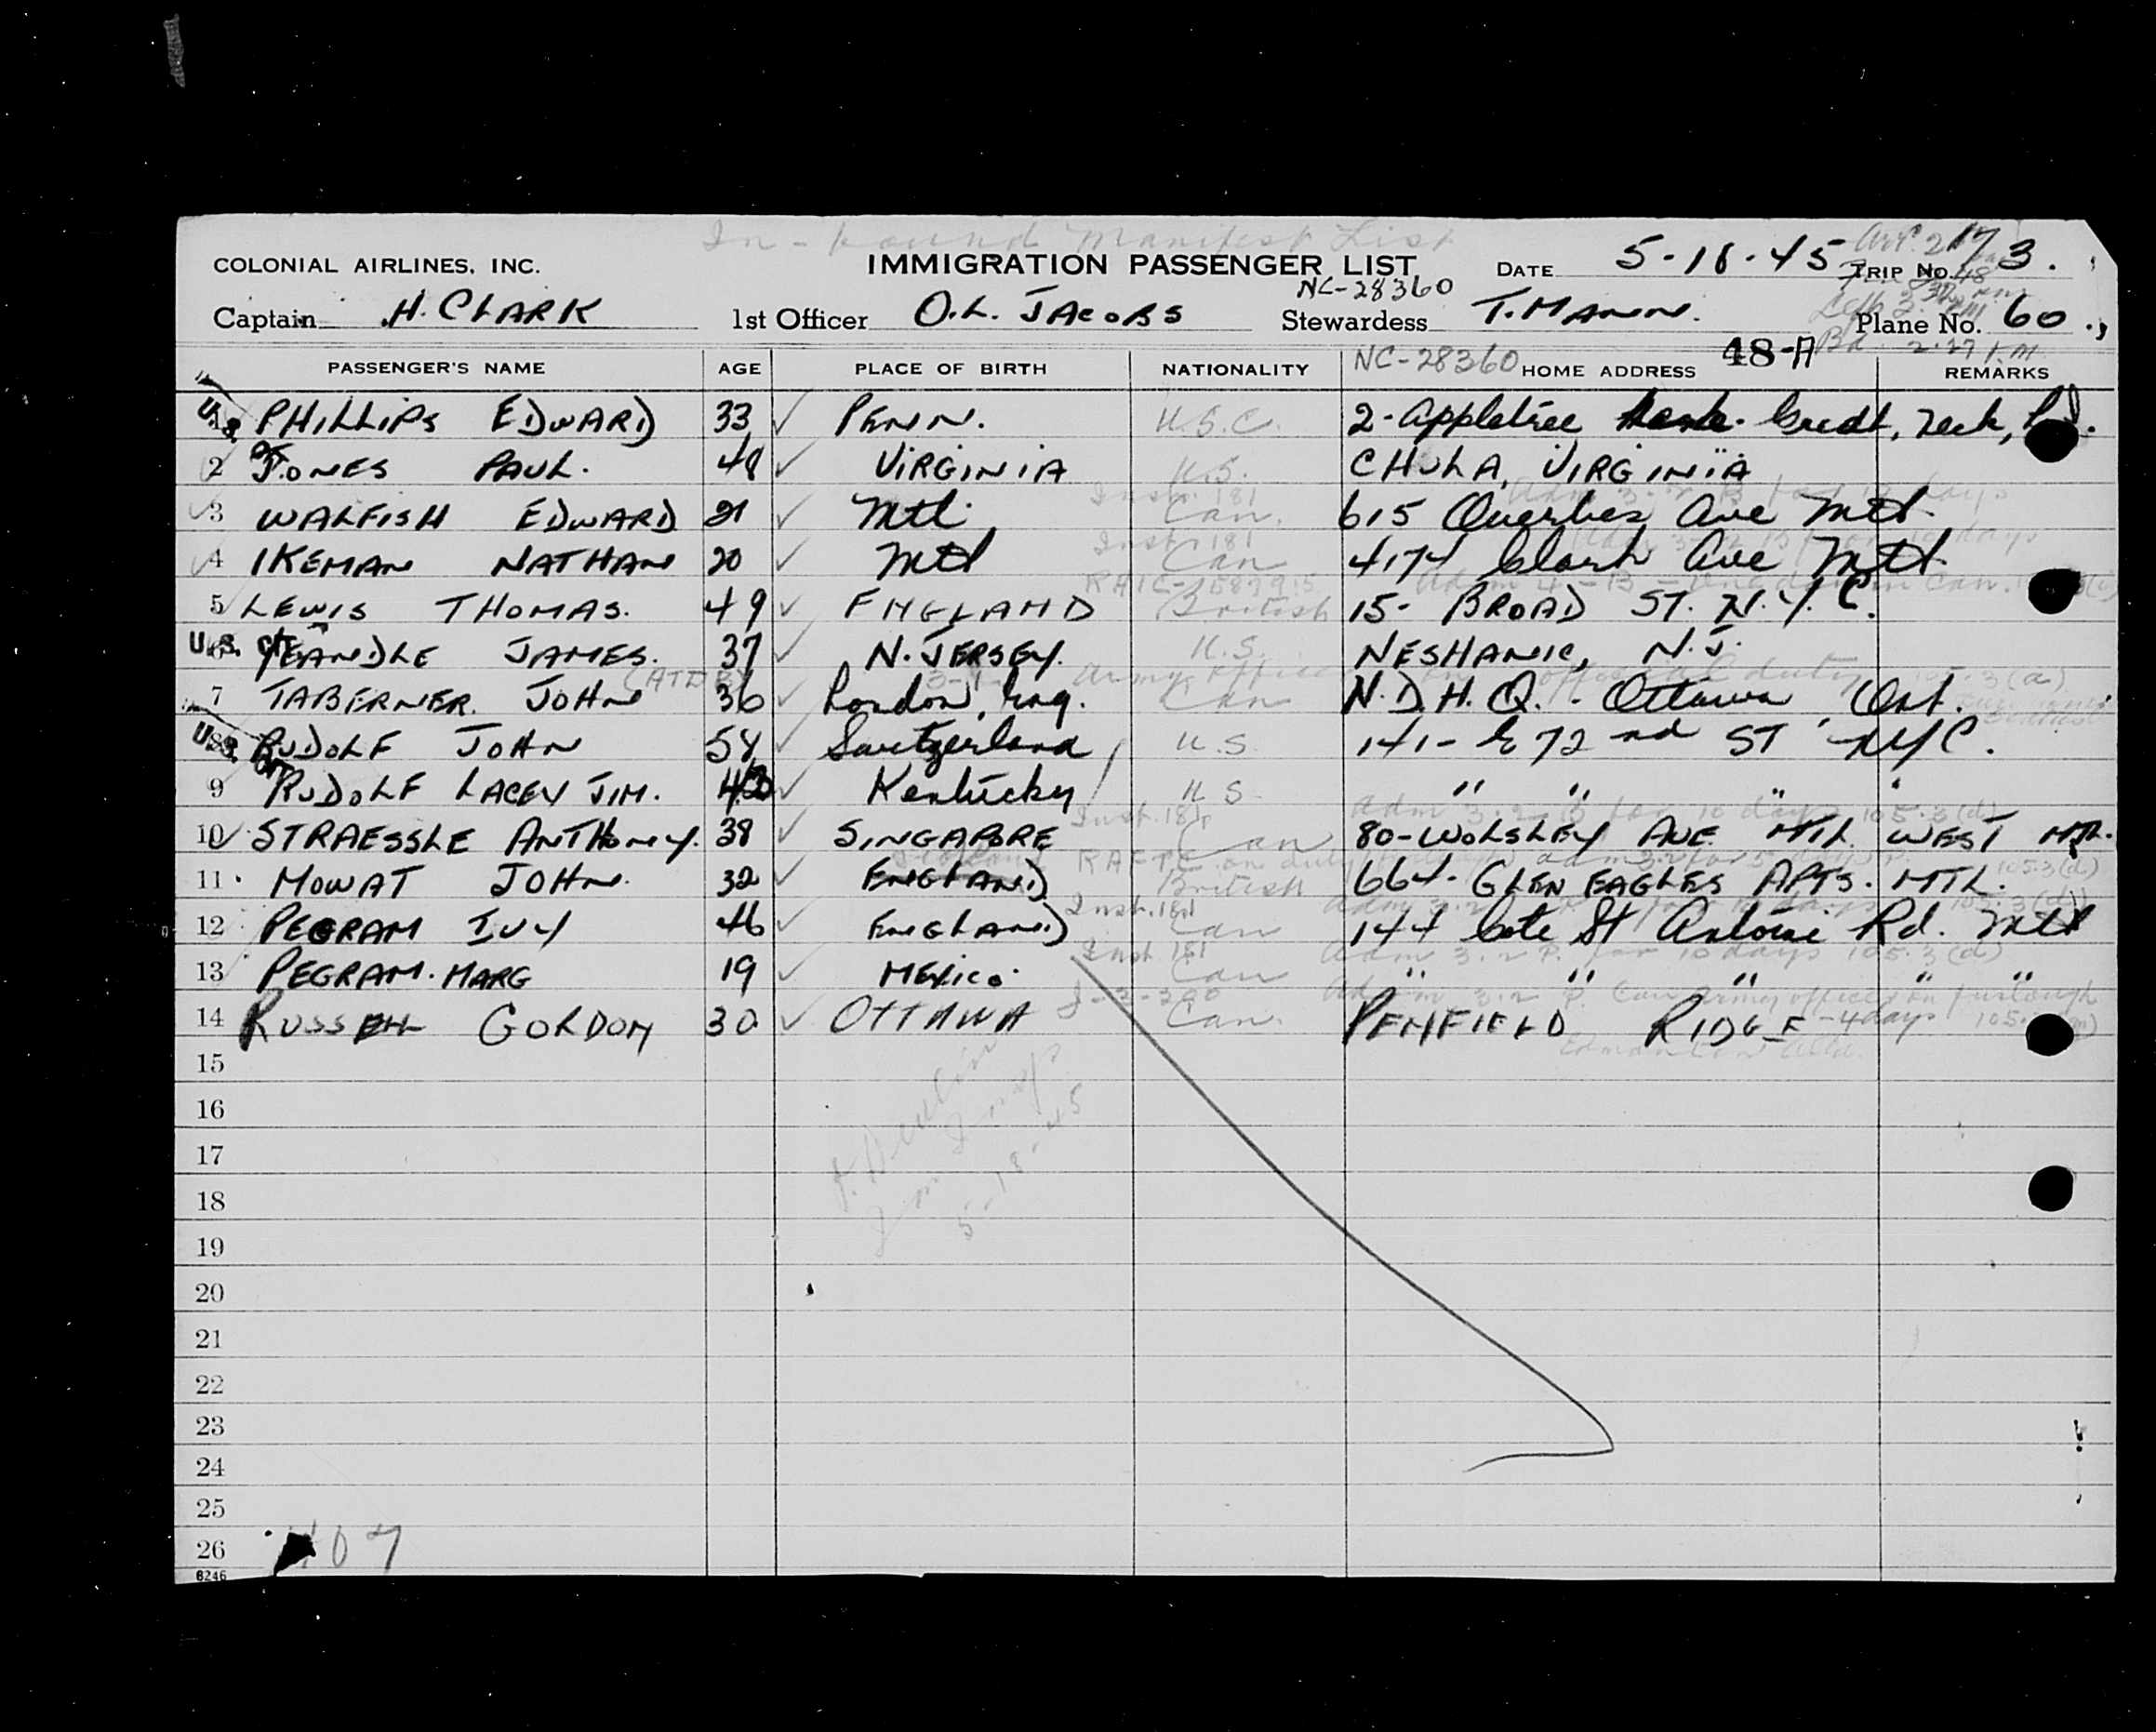 In-bound Manifest List
COLONIAL AIRLINES, INC. IMMIGRATION PASSENGER LIST DATE 5-18-45 TRIP NO. 3.
NC-28360
Captain H. CLARK 1st Officer O.L. JACOBS Stewardess T. MANN. Plane No. 60
48-A
2.27 P.M
PASSENGER'S NAME AGE PLACE OF BIRTH NATIONALITY NC-28360 HOME ADDRESS REMARKS
PHILLIPS EDWARD 33 PENN. U.S.C. 2-Appletree Great Neck,
2 JONES PAUL. 48 VIRGINIA U.S. CHULA, VIRGINIA
Inst. 181 Adm 3.2 B for days
3 WALFISH EDWARD 21 Mtl. Can. 615 Querbes Ave Mtl.
Inst. 181 days
4 IKEMAN NATHAN 20 Mtl Can 4174 Clark Ave Mtl.
5 LEWIS THOMAS. 49 ENGLAND British 15- BROAD ST. N.Y.C.
U.S. CIT. YEANDLE JAMES. 37 N. JERSEY. U.S. NESHANIC, N.J.
Army officer on official duty 105.3(a)
7 TABERNER JOHN 36 London, Eng. Can N.D.H.Q. - Ottawa, Ont.
RUDOLF JOHN 58 Switzerland U.S. 141- E 72nd ST NYC.
9 RUDOLF LACEY JIM. 43 Kentucky U.S. " " " "
Inst. 181 Adm 3.2 B for 10 days 105.3(d)
10 STRAESSLE ANTHONY. 38 SINGAPORE Can 80-WOLSLEY AVE MTL. WEST MTL.
105.3(d)
11 MOWAT JOHN. 32 ENGLAND British 664- GLEN EAGLES APTS. MTL.
Inst. 181 105.3(d)
12 PEGRAM IVY 46 ENGLAND Can 144 Cote St Antoine Rd. Mtl
Inst 181 Adm 3.2 P. for 10 days 105.3(d)
13 PEGRAM. MARG 19 MEXICO Can " " " " "
Adm 3.2 P. Can Army officer on furlough
14 RUSSELL GORDON 30 OTTAWA Can. PENFIELD RIDGE -4 days 105.
Edmonton Alta.
15
16
17
5-18-45
18
19
20
21
22
23
24
25
26
407
6246